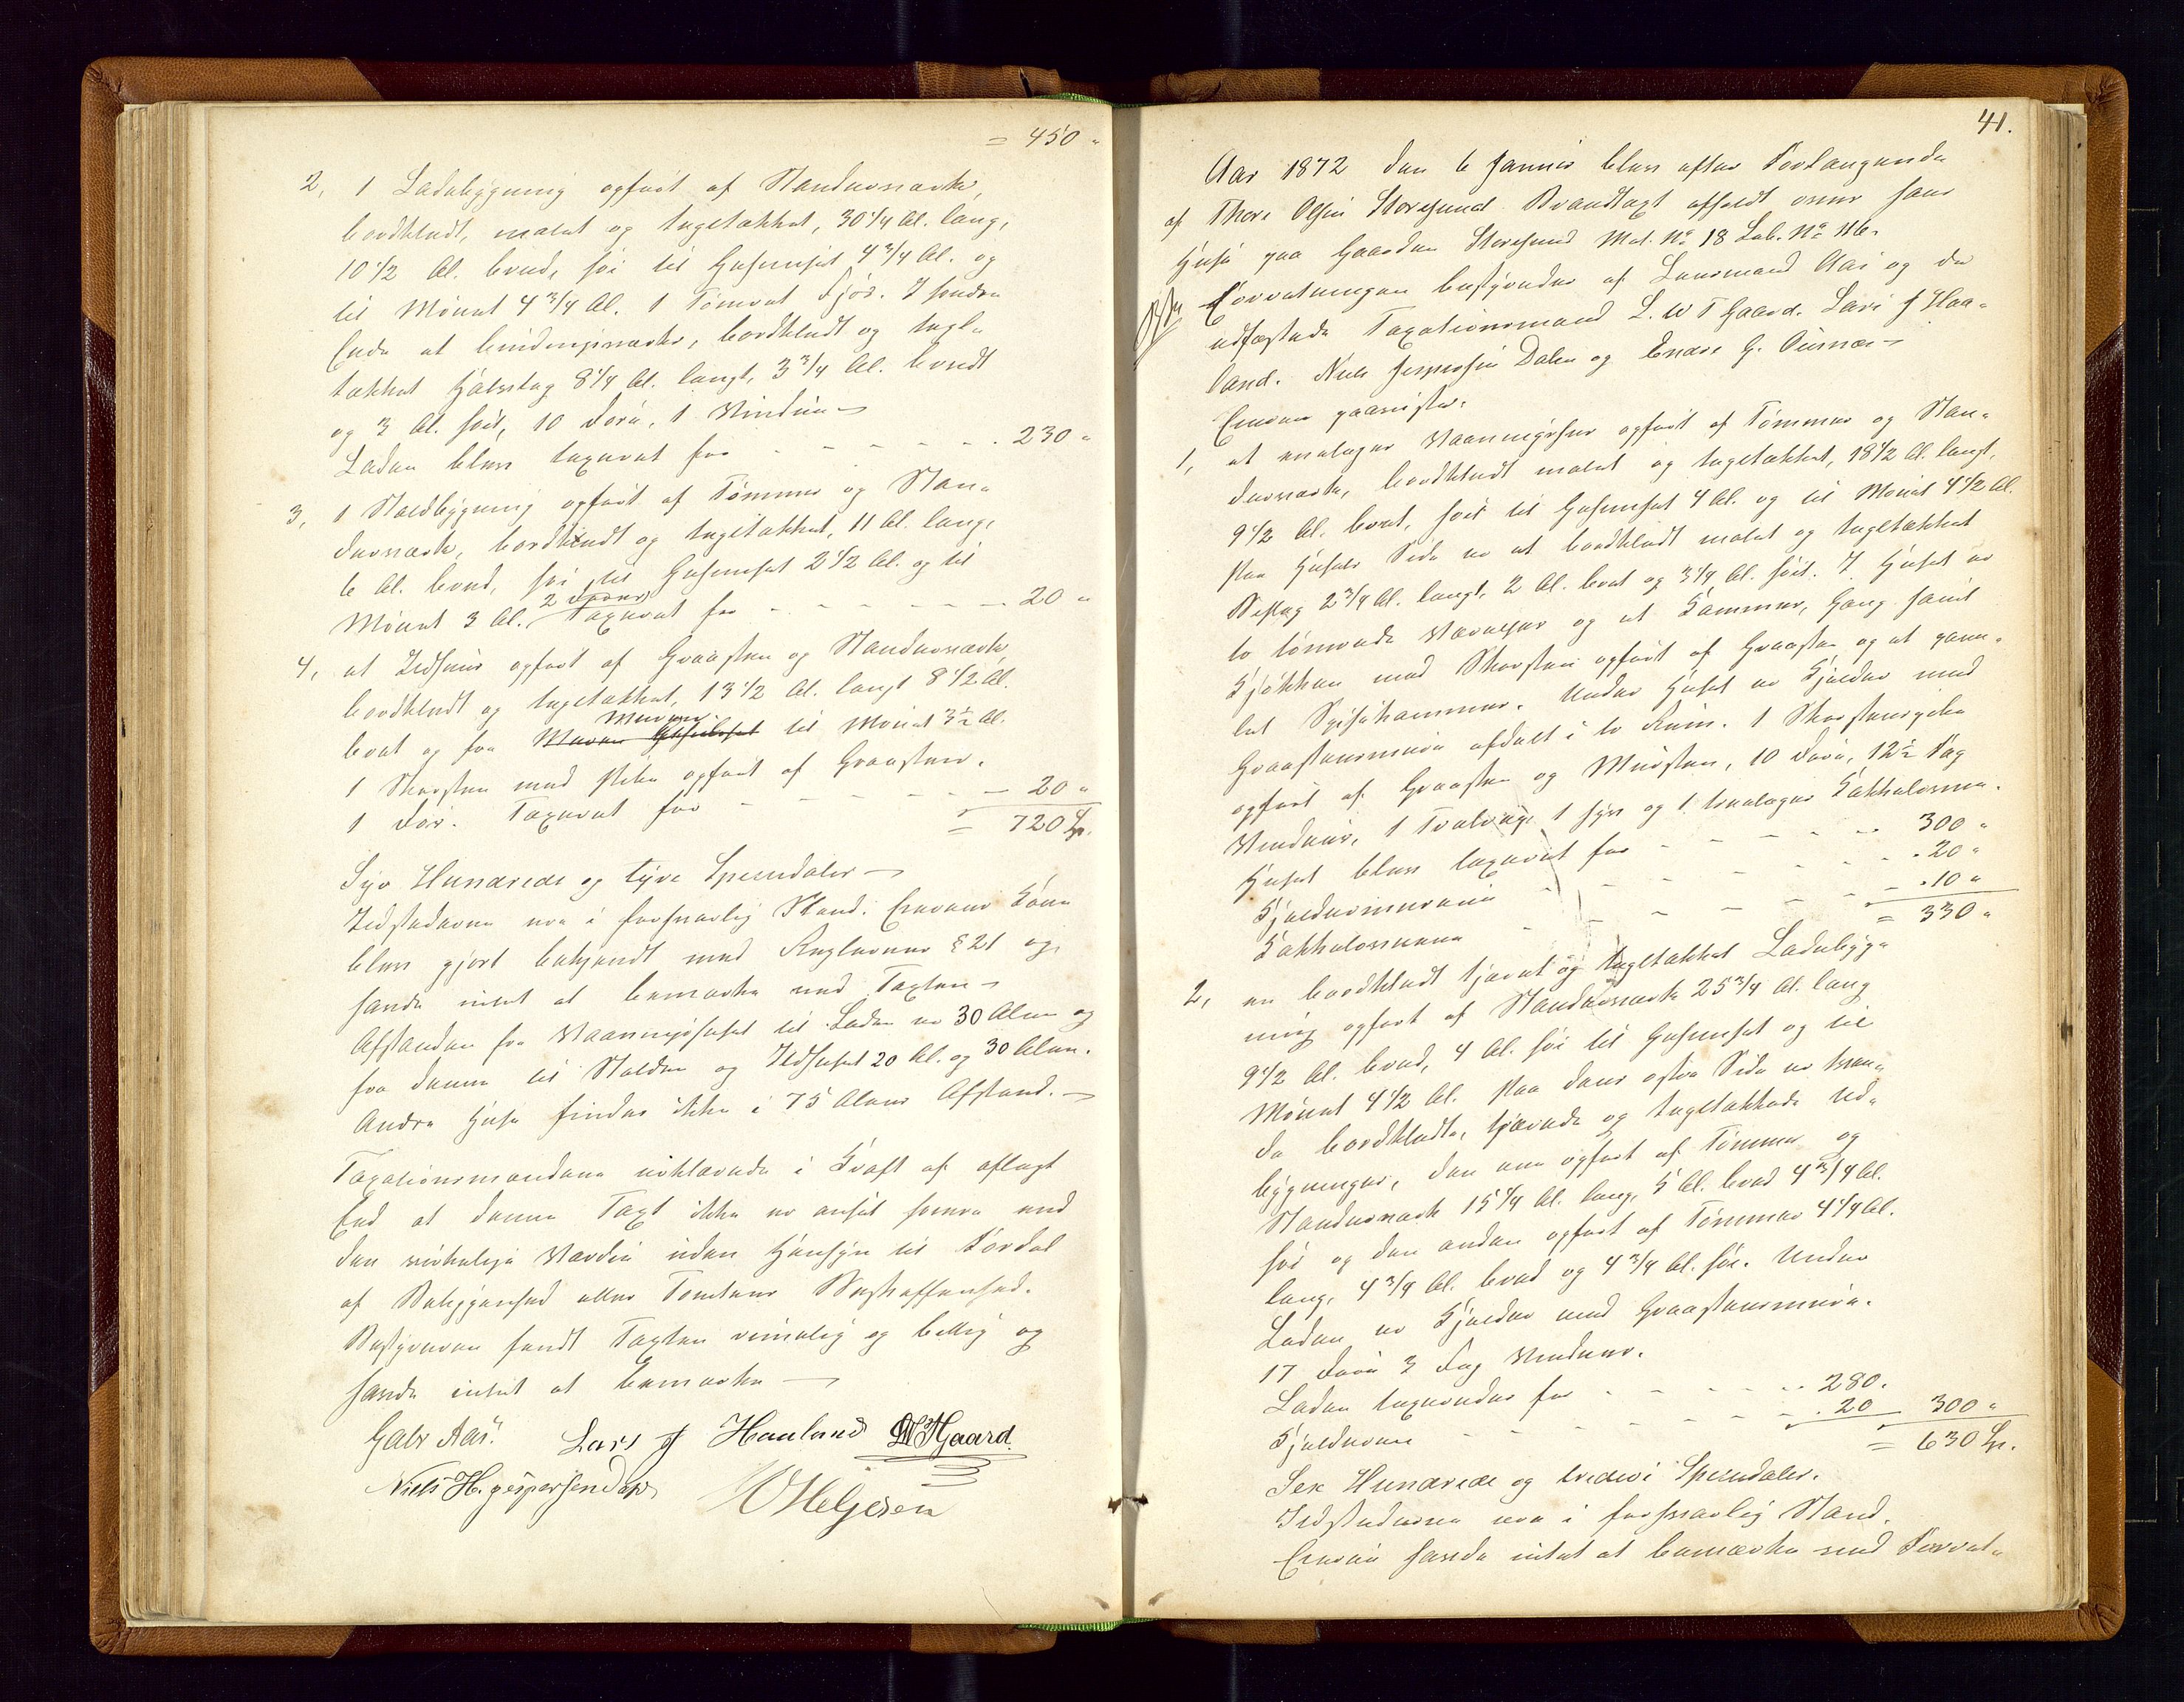 = 450 "
2, 1 Ladebÿgning opført af Standerværk,
bordklædt, malet og tegltækket, 30 1/4 Al. lang,
10 1/2 Al. bred, høi til Gesimset 4 3/4 Al. og
til Mønet 4 3/4 Al. 1 Tømret Fjøs. I søndre
Ende et bindingsværks, bordklædt og tegl-
tækket Halvtag 8 1/4 Al. langt, 3 3/4 Al. bredt
og 3 Al. høit, 10 Døre, 1 Vindue –
Laden blev taxeret for - - - - - 230 "
3, 1 Staldbÿgning opført af Tømmer og Stan-
derværk, bordklædt og tegltækket, 11 Al. lang,
6 Al. bred, høi til Gesimset 2 1/2 Al. og til
Mønet 3 Al. 2 Døre Taxeret for - - - - - 20 "
4, et Ildhuus opført af Graasten og Standerværk
bordklædt og tegltækket, 13 1/2 Al. langt 8 1/2 Al.
bret og fra Muren til Mønet 3 1/2 Al.
1 Skorsten med Pibe opført af Graasten.
1 Dør. Taxeret for - - - - - 20 "
= 720 Sp.
Syv Hundrede og tyve Speciedaler –
Ildstederne var i forsvarlig Stand. Eierens Kone
blev gjort bekjendt med Reglernes § 21 og
havde intet at bemærke ved Taxten –
Afstanden fra Vaaningshuset til Laden er 30 Alen og
fra denne til Stalden og Ildhuset 20 Al. og 30 Alen.
Andre Huse findes ikke i 75 Alens Afstand. –
Taxationsmændene erklærede i Kraft af aflagt
Eed at denne Taxt ikke er ansat høiere end
den virkelige Værdie uden Hensyn til Fordel
af Beliggenhed eller Tomtens Beskaffenhed.
Bestyreren fandt Taxten rimelig og billig og
havde intet at bemærke –
Gabr Aas. Lars J Hauland LWTGaard
Niels H. Jespersen Dale Helgesen
41.
Aar 1872 den 6 Januar blev efter Forlangende
af Thore Olsen Storesund Brandtaxt afholdt over hans
Huse paa Gaarden Storesund Mat. No 18 Løb. No 116.
Forretningen bestyredes af Lensmand Aas og de
udfæstede Taxationsmænd L. W T Gaard. Lars J Haa-
land. Niels Jespersen Dalen og Endre G.
Eieren paaviste.
1, et enetages Vaaningshus opført af Tømmer og Stan-
derværk, bordklædt malet og tegltækket, 18 1/2 Al. langt,
9 1/2 Al. bret, høit til Gesimset 4 Al. og til Mønet 4 1/2 Al.
Paa Husets Side er et bordklædt malet og tegltækket
Bislag 2 3/4 Al. langt, 2 Al. bret og 3 1/4 Al. høit. I Huset er
to tømrede Værelser og et Kammer, Gang samt
Kjøkken med Skorsten opført af Graasten og et panne-
let Spisekammer. Under Huset er Kjelder med
Graastensmure afdelt i to Rum. 1 Skorstenspibe
opført af Graasten og Mursten, 10 Døre, 12 1/2 Fag
Vinduer, 1 1 Jern og 1 tveetages Kakkelovne.
Huset blev taxeret for - - - - - 300 "
Kjeldermurene - - - - - 20 "
Kakkelovnene - - - - - 10 "
= 330 "
2, en bordklædt tjæret og tegltækket Ladebÿg-
ning opført af Standerværk 25 3/4 Al. lang
9 1/2 Al. bred, 4 Al. høi til Gesimset og til
Mønet 4 1/2 Al. Paa dens østre Side er tven-
de bordklædte, tjærede og tegltækkede Ud-
bygninger, den ene opført af Tømmer og
Standerværk 15 1/4 Al. lang, 5 Al. bred 4 3/4 Al.
høi og den anden opført af Tømmer 4 1/4 Al.
lang, 4 3/4 Al. bred og 4 3/4 Al. høi. Under
Laden er Kjelder med Graastensmure.
17 Døre 3 Fag Vinduer.
Laden taxeredes for - - - - - 280.
Kjelderen - - - - - 20 300 "
= 630 Sp.
Sex Hundrede og tredive Speciedaler.
Ildstederne var i forsvarlig Stand.
Eieren havde intet at bemærke ved Forret-